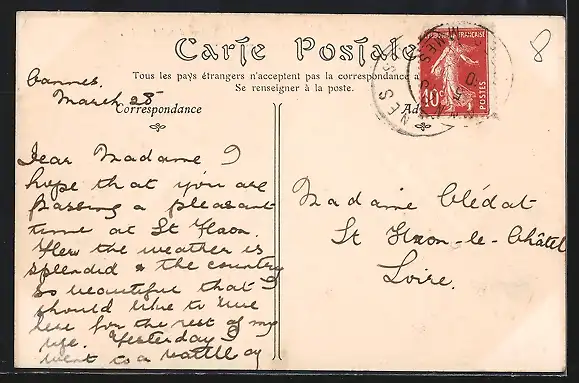 Carte Postale
Tous les pays étrangers n'acceptent pas la correspondance a
Se renseigner à la poste.
Correspondance
Ad
FRANÇAISE
10c
POSTES
8
Cannes.
March 28
Dear Madame I
hope that you are
passing a pleasant
time at St Haon.
Here the weather is
splendid & the country
so beautiful that I
should like to live
here for the rest of my
life. Yesterday I
went to a battle of
Madame Clédat
St Haon-le-Châtel
Loire.